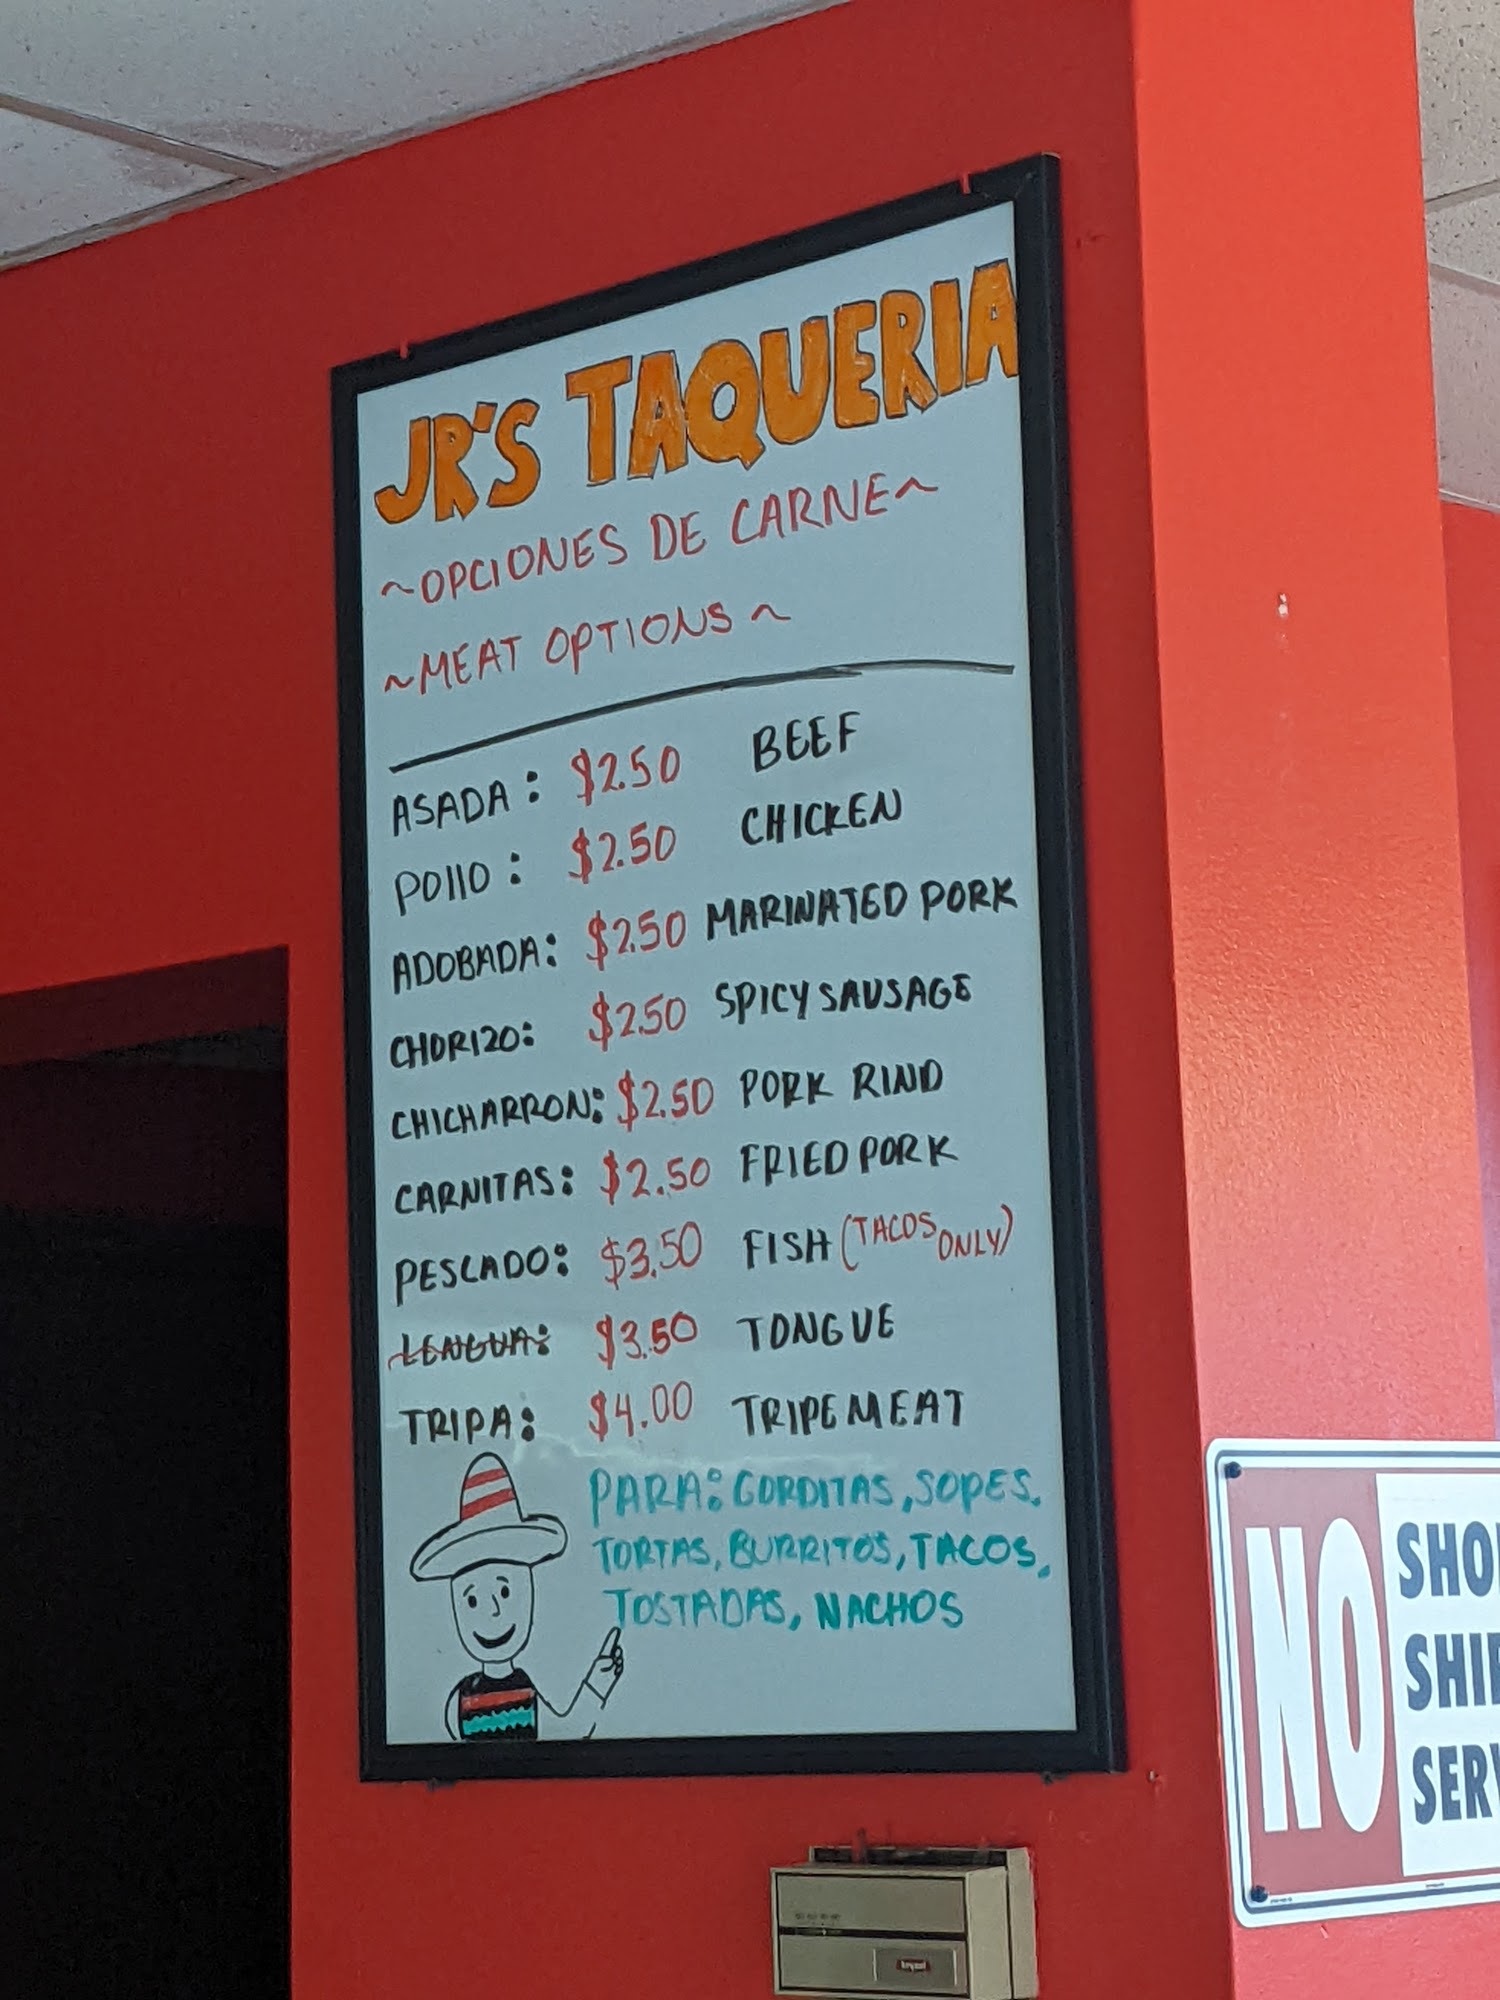 JR'S TAQUERIA
~OPCIONES DE CARNE~
~MEAT OPTIONS~
ASADA: $2.50 BEEF
POllO: $2.50 CHICKEN
ADOBADA: $2.50 MARINATED PORK
CHORIZO: $2.50 SPICY SAUSAGE
CHICHARRON: $2.50 PORK RIND
CARNITAS: $2.50 FRIED PORK
PESCADO: $3.50 FISH (TACOS ONLY)
LENGUA: $3.50 TONGUE
TRIPA: $4.00 TRIPE MEAT
PARA: GORDITAS, SOPES,
TORTAS, BURRITOS, TACOS,
TOSTADAS, NACHOS
NO
SHO
SHI
SER
bryant